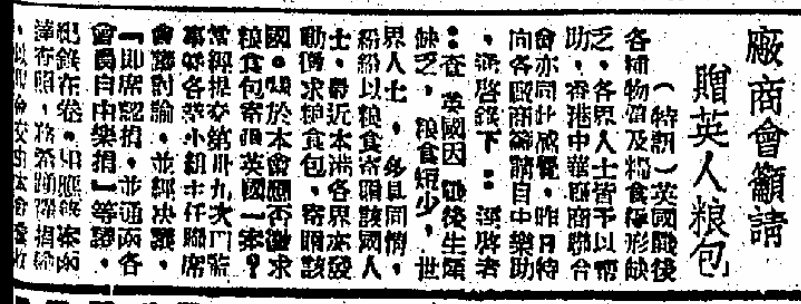 廠商會籲請
贈英人粮包
(特訊)英國戰後
各種物價及粮食極形缺
乏,各界人士皆予以幫
助,香港中華廠商聯合
會亦同此感覺,昨日特
向各廠商籲請自由樂助
,逕啓錄下:逕啓者
:查英國因戰後生產
缺乏,粮食短少,世
界人士,多具同情,
紛紛以粮食寄贈該國人
士,最近本港各界亦發
動徵求粮食包,寄贈該
國。關於本會應否徵求
粮食包寄返英國一案,
當經提交第卅九次監
事各小組主任聯席
會議討論,並經决議,
「即席認捐,並通函各
會員自由樂捐」等語,
紀錄在卷。相應錄案函
達查照,捐
本會